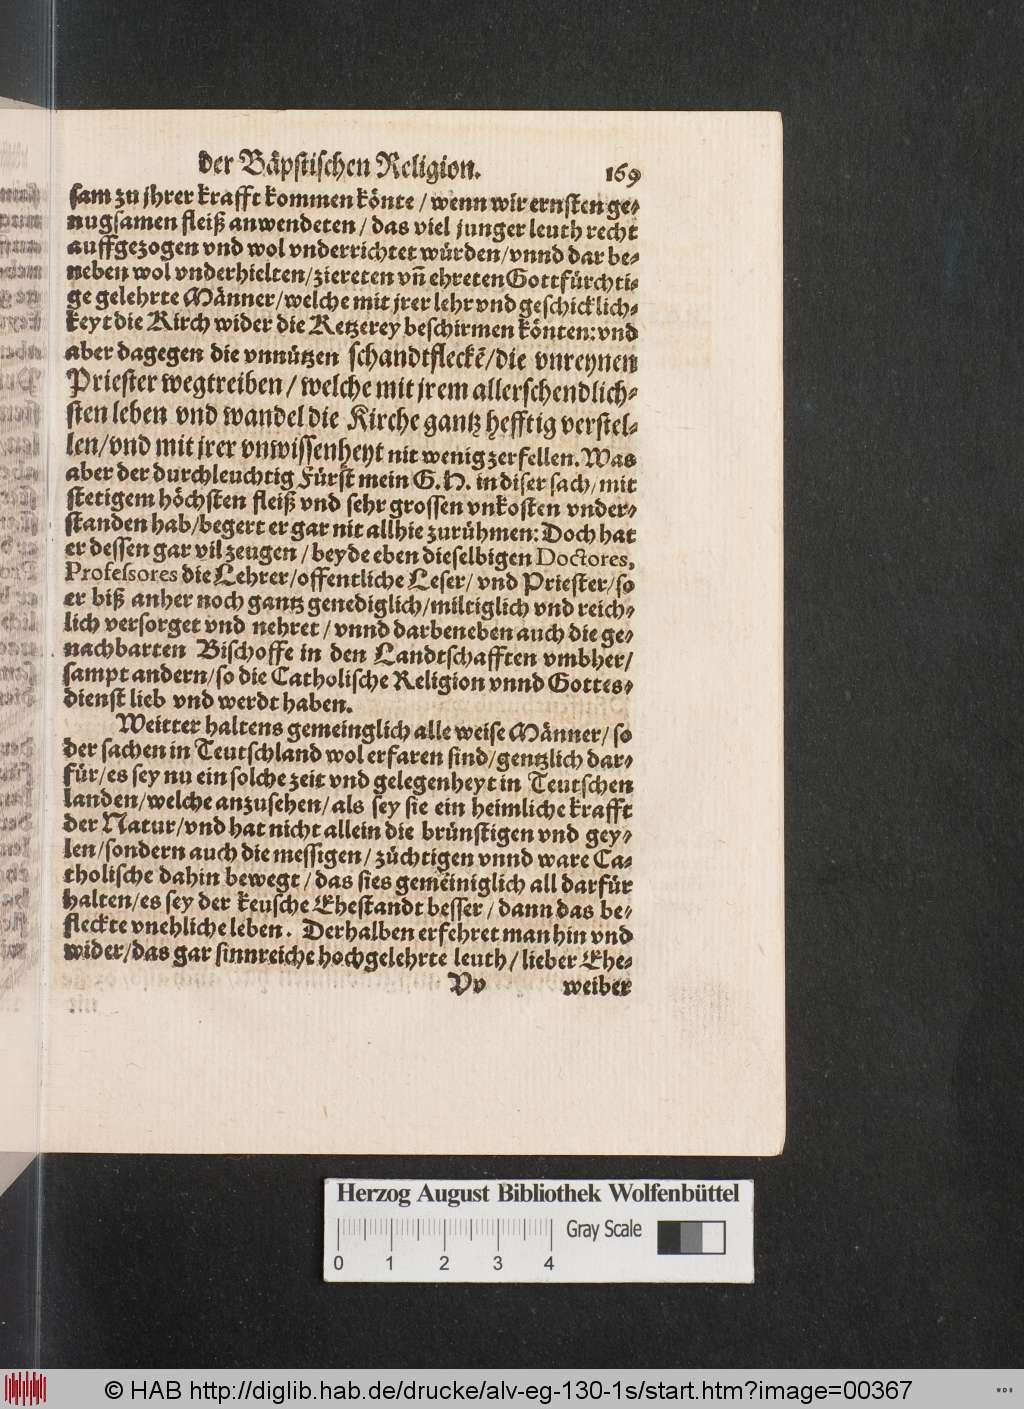 der Bäpstischen Religion. 169
sam zu jhrer krafft kommen könte / wenn wir ernsten ge-
nugsamen fleiß anwendeten / das viel junger leuth recht
auffgezogen vnd wol vnderrichtet würden / vnnd dar be-
neben wol vnderhielten / ziereten vñ ehreten Gottfürchti-
ge gelehrte Männer / welche mit jrer lehr vnd geschicklich-
keyt die Kirch wider die Ketzerey beschirmen könten: vnd
aber dagegen die vnnützen schandtfleckẽ / die vnreynen
Priester wegtreiben / welche mit jrem allerschendlich-
sten leben vnd wandel die Kirche gantz hefftig verstel-
len / vnd mit jrer vnwissenheyt nit wenig zerfellen. Was
aber der durchleuchtig Fürst mein G. H. in diser sach / mit
stetigem höchsten fleiß vnd sehr grossen vnkosten vnder-
standen hab / begert er gar nit allhie zurühmen: Doch hat
er dessen gar vil zeugen / beyde eben dieselbigen Doctores,
Professores die Lehrer / offentliche Leser / vnd Priester / so
er biß anher noch gantz genediglich / miltiglich vnd reich-
lich versorget vnd nehret / vnnd darbeneben auch die ge-
nachbarten Bischoffe in den Landtschafften vmbher /
sampt andern / so die Catholische Religion vnnd Gottes-
dienst lieb vnd werdt haben.
Weitter haltens gemeinglich alle weise Männer / so
der sachen in Teutschland wol erfaren sind / gentzlich dar-
für / es sey nu ein solche zeit vnd gelegenheyt in Teutschen
landen / welche anzusehen / als sey sie ein heimliche krafft
der Natur / vnd hat nicht allein die brünstigen vnd gey-
len / sondern auch die messigen / züchtigen vnnd ware Ca-
tholische dahin bewegt / das sies gemeiniglich all darfür
halten / es sey der keusche Ehestandt besser / dann das be-
fleckte vnehliche leben. Derhalben erfehret man hin vnd
wider / das gar sinnreiche hochgelehrte leuth / lieber Ehe-
Vv weiber
Herzog August Bibliothek Wolfenbüttel
Gray Scale
0 1 2 3 4
© HAB http://diglib.hab.de/drucke/alv-eg-130-1s/start.htm?image=00367